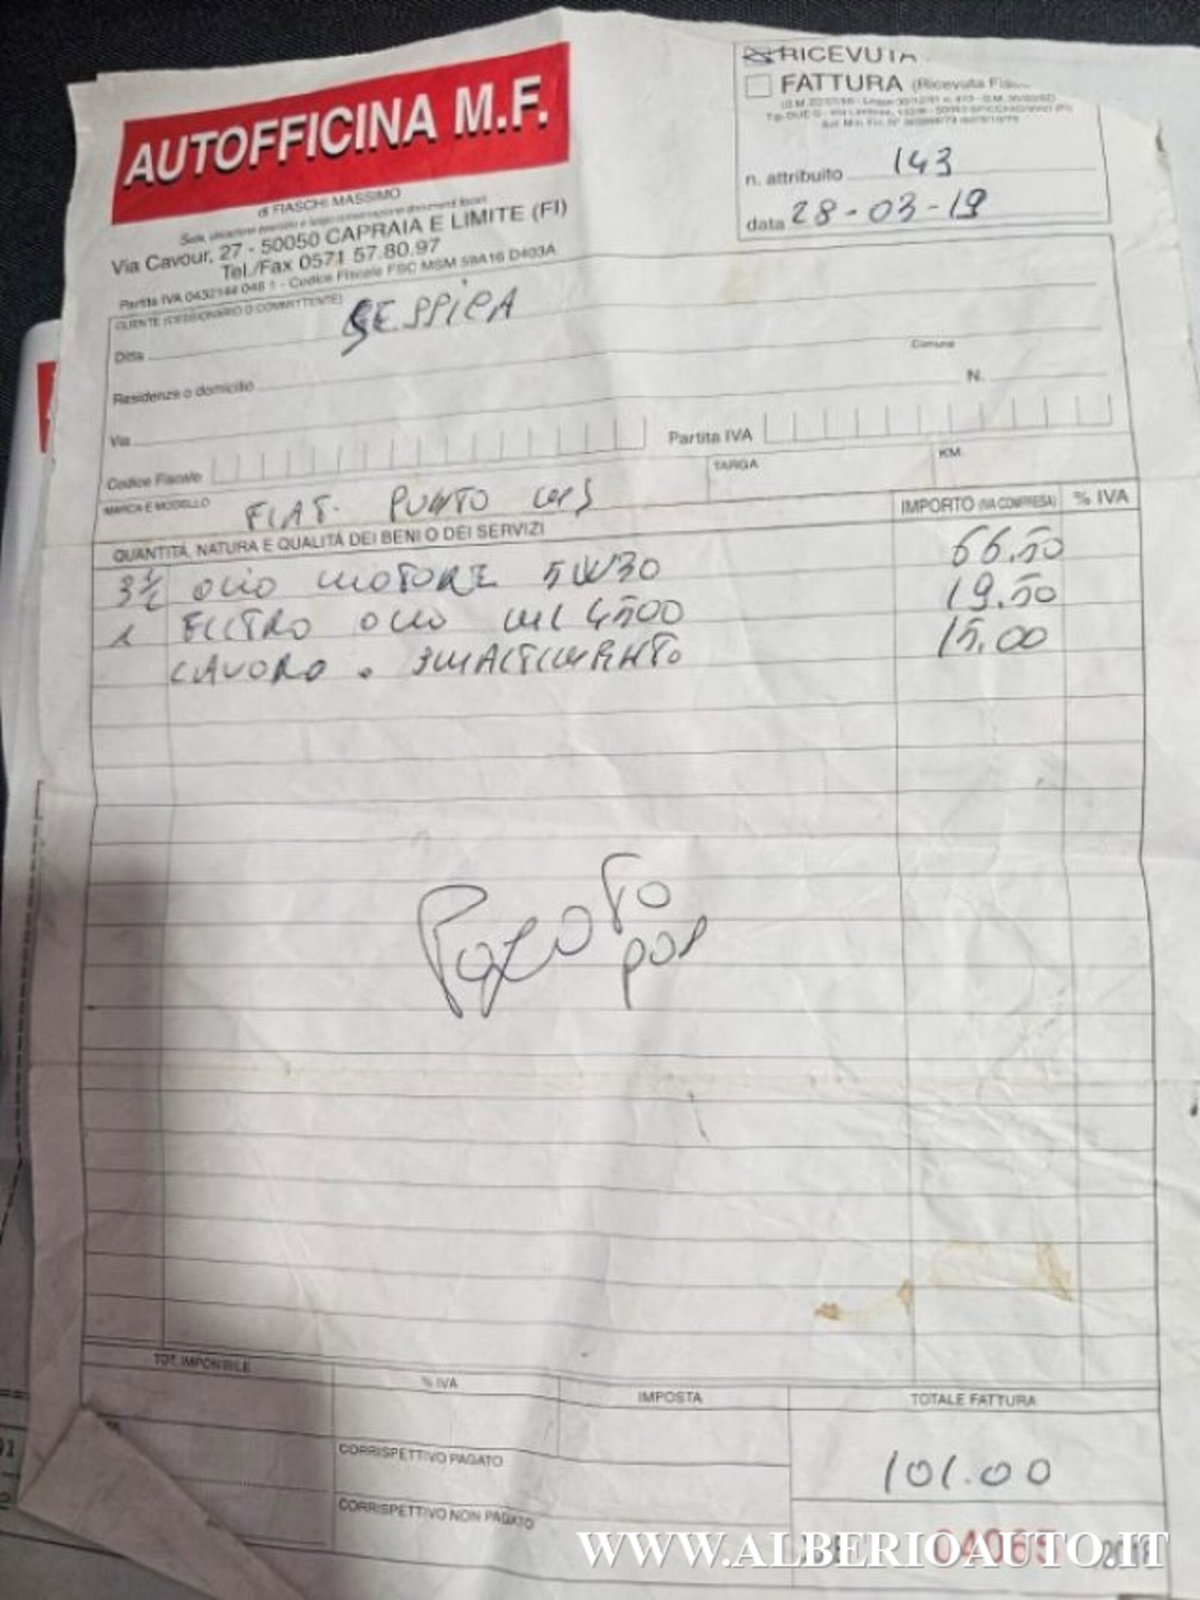 AUTOFFICINA M.F.
di FIASCHI MASSIMO
Via Cavour, 27 - 50050 CAPRAIA E LIMITE (FI)
Tel./Fax 0571 57.80.97
Partita IVA 0432144 048 1 - Codice Fiscale FSC MSM 59A16 D403A
RICEVUTA
FATTURA (Ricevuta Fis
n. attribuito 143
data 28-03-19
CLIENTE (CESSIONARIO O COMMITTENTE)
Ditta
Residenza o domicilio
Comune
Via
N.
Codice Fiscale
Partita IVA
MARCA E MODELLO FIAT. PUNTO
TARGA
KM.
QUANTITÀ, NATURA E QUALITÀ DEI BENI O DEI SERVIZI
IMPORTO (IVA COMPRESA)
% IVA
3 1/2 OLIO MOTORE 5W30 66.50
1 FILTRO OLIO 4500 19.50
LAVORO . SMALTIMENTO 15.00
PAGATO
POS
TOT. IMPONIBILE
% IVA
IMPOSTA
TOTALE FATTURA
CORRISPETTIVO PAGATO
101.00
CORRISPETTIVO NON PAGATO
WWW.ALBERIOAUTO.IT